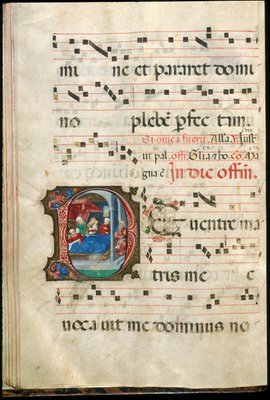 mi ne et pararet domi
no plebē pfec tam.
fuerit. Alla. V. Iust
ut pal. offm. Glia co. Ma
gna ē. In die offm.
DE uentre ma
tris me e
uoca uit me dominus no